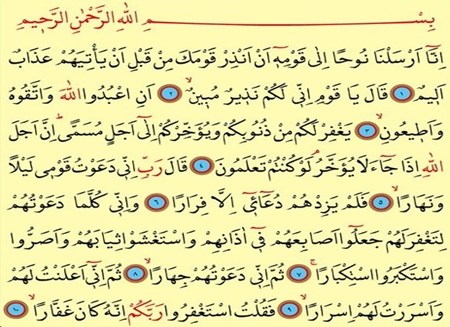 بِسْمِ اللهِ الرَّحْمٰنِ الرَّح۪يمِ
اِنَّٓا اَرْسَلْنَا نُوحًا اِلٰى قَوْمِه۪ٓ اَنْ اَنْذِرْ قَوْمَكَ مِنْ قَبْلِ اَنْ يَأْتِيَهُمْ عَذَابٌ
اَل۪يمٌ ﴿١﴾ قَالَ يَا قَوْمِ اِنّ۪ي لَكُمْ نَذ۪يرٌ مُب۪ينٌۙ ﴿٢﴾ اَنِ اعْبُدُوا اللهَ وَاتَّقُوهُ
وَاَط۪يعُونِۙ ﴿٣﴾ يَغْفِرْ لَكُمْ مِنْ ذُنُوبِكُمْ وَيُؤَخِّرْكُمْ اِلٰٓى اَجَلٍ مُسَمًّىۜ اِنَّ اَجَلَ
اللهِ اِذَا جَٓاءَ لَا يُؤَخَّرُۢ لَوْ كُنْتُمْ تَعْلَمُونَ ﴿٤﴾ قَالَ رَبِّ اِنّ۪ي دَعَوْتُ قَوْم۪ي لَيْلًا
وَنَهَارًاۙ ﴿٥﴾ فَلَمْ يَزِدْهُمْ دُعَٓاء۪ٓي اِلَّا فِرَارًا ﴿٦﴾ وَاِنّ۪ي كُلَّمَا دَعَوْتُهُمْ
لِتَغْفِرَ لَهُمْ جَعَلُٓوا اَصَابِعَهُمْ ف۪ٓي اٰذَانِهِمْ وَاسْتَغْشَوْا ثِيَابَهُمْ وَاَصَرُّوا
وَاسْتَكْبَرُوا اسْتِكْبَارًاۚ ﴿٧﴾ ثُمَّ اِنّ۪ي دَعَوْتُهُمْ جِهَارًاۙ ﴿٨﴾ ثُمَّ اِنّ۪ٓي اَعْلَنْتُ لَهُمْ
وَاَسْرَرْتُ لَهُمْ اِسْرَارًاۙ ﴿٩﴾ فَقُلْتُ اسْتَغْفِرُوا رَبَّكُمْ اِنَّهُ كَانَ غَفَّارًاۙ ﴿١٠﴾